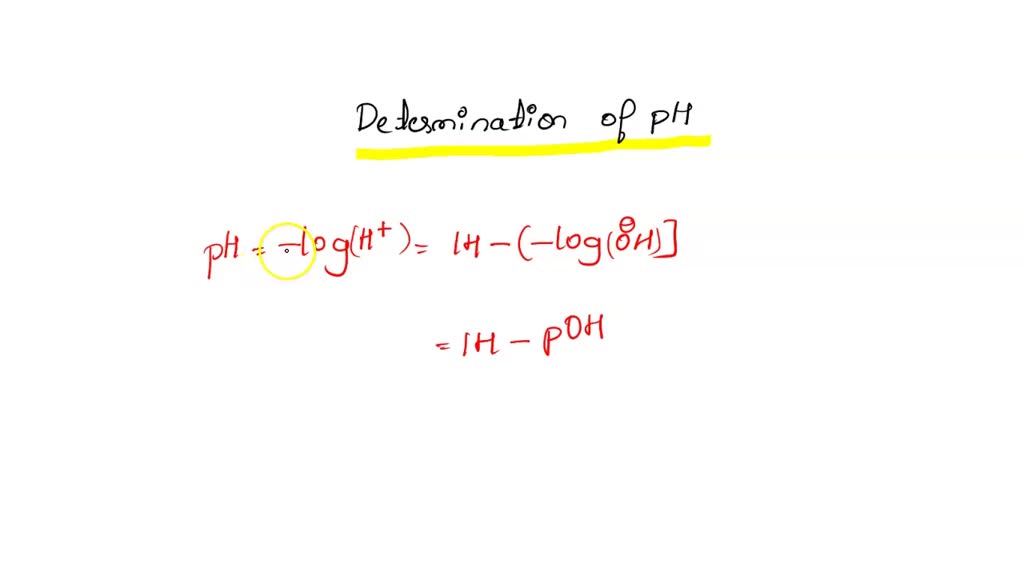 Determination of pH
pH = -log(H⁺) = 14 - (-log(OH⊖)]
= 14 - pOH